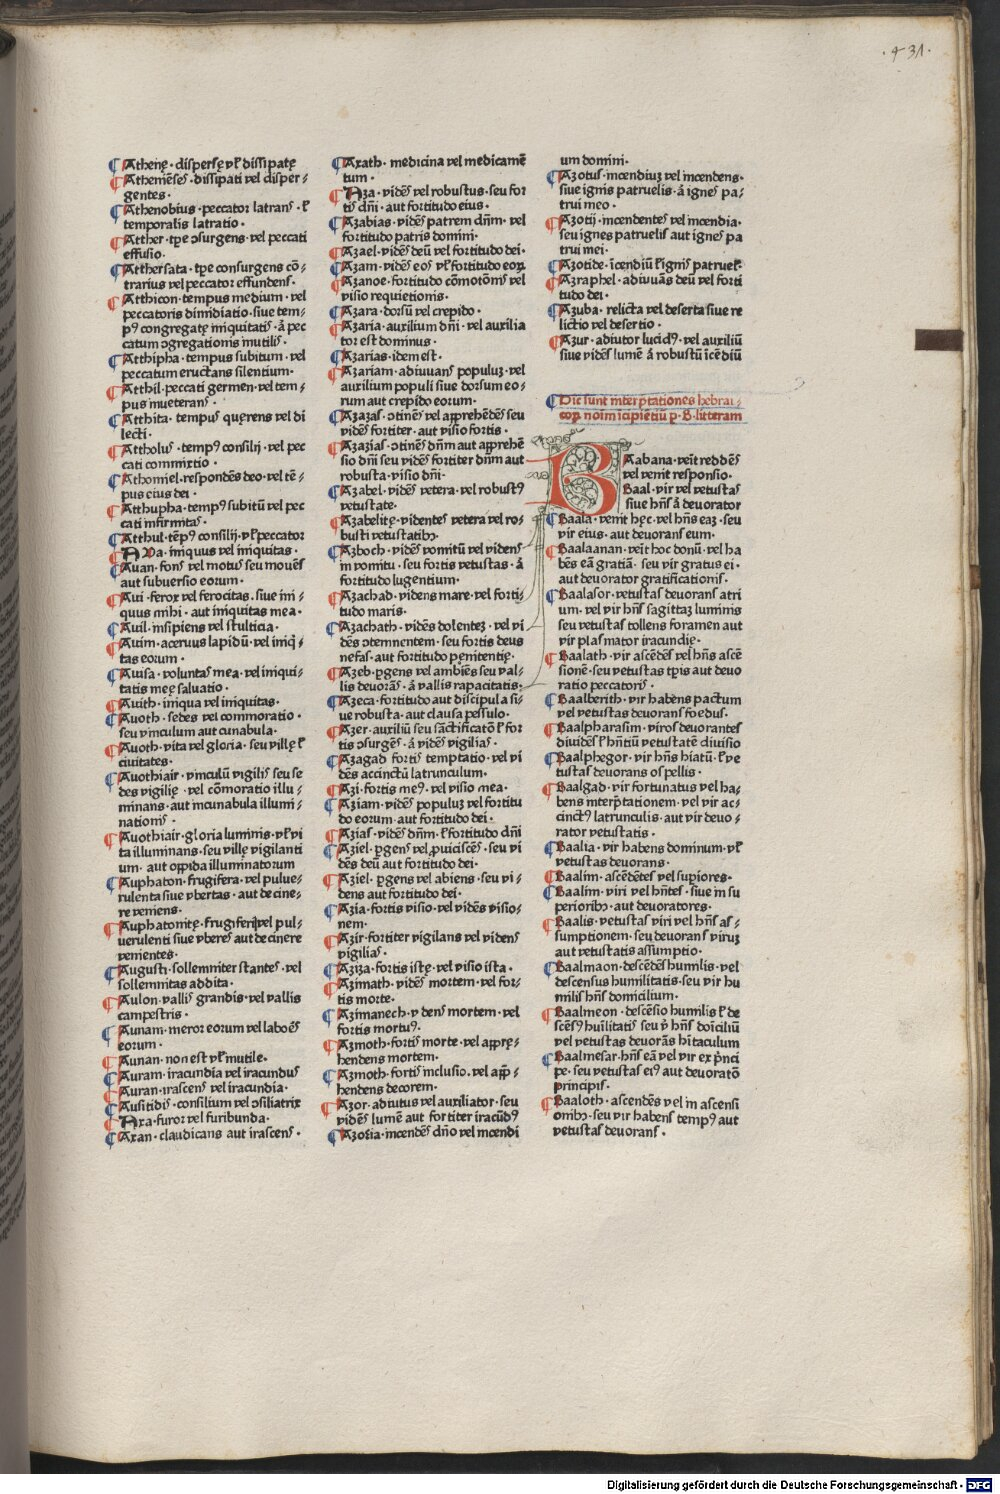 ·431·
Athenę · dispersę vł dissipatę
Athemēses · dissipati vel disper-
gentes ·
Athenobius · peccator latrans · ł
temporalis latratio ·
Atther · tp̄e ↄsurgens · vel peccati
effusio ·
Atthersata · tp̄e consurgens cō-
trarius vel peccator effundens ·
Atthicon · tempus medium · vel
peccatoris dimidiatio · siue tem-
pꝰ congregatę iniquitatis · ā pec
catum ↄgregationis inutilis ·
Atthipha · tempus subitum · vel
peccatum eructans silentium ·
Atthil · peccati germen · vel tem-
pus
Atthita · tempus quęrens vel di
lecti ·
Attholus · tempꝰ consilij · vel pec
cati commixtio ·
Athomiel · respondēs deo · vel tē-
pus eius dei ·
Atthupha · tempꝰ subitū vel pec
cati infirmitas ·
Atthul · tēpꝰ consilij · vł peccator
Aua · iniquus vel iniquitas ·
Auan · fons vel motus seu mouēs
aut subuersio eorum ·
Aui · ferox vel ferocitas · siue ini-
quus mihi · aut iniquitas mea ·
Auil · insipiens vel stulticia ·
Auim · aceruus lapidū · vel iniq̄-
tas eorum ·
Auisa · voluntas mea · vel iniqui-
tatis meę saluatio ·
Auith · iniqua vel iniquitas ·
Auoth · sedes vel commoratio ·
seu vinculum aut cunabula ·
Auoth · vita vel gloria · seu villę ł
ciuitates ·
Auothiair · vinculū vigilis seu se
des vigilię · vel cōmoratio illu-
minans · aut incunabula illumi-
nationis ·
Auothiair · gloria luminis · vł vi
ta illuminans · seu villę vigilanti
um · aut oppida illuminatorum
Auphaton · frugifera · vel pulue-
rulenta siue vbertas · aut de cine-
re veniens ·
Auphatomitę · frugiferi vel pul-
uerulenti siue vberes aut de cinere
venientes ·
Augusti · sollemniter stantes · vel
sollemnitas addita ·
Aulon · vallis grandis · vel vallis
campestris ·
Aunam · meror eorum vel labōēs
eorum ·
Aunan · non est vł inutile ·
Auram · iracundia vel iracundus
Auran · irascens vel iracundia ·
Ausitidis · consilium vel ↄsiliatrix
Axa · furor vel furibunda ·
Axan · claudicans aut irascens ·
Axath · medicina vel medicamē
tum ·
Aza · vidēs vel robustus · seu for
tis dn̄i · aut fortitudo eius ·
Azabias · vidēs patrem dn̄m · vel
fortitudo patris domini ·
Azael · vidēs deū vel fortitudo dei ·
Azam · vidēs eos vł fortitudo eoꝝ
Azanoe · fortitudo cōmotōnis vel
visio requietionis ·
Azara · dorsū vel crepido ·
Azaria · auxilium dn̄i · vel auxilia
tor est dominus ·
Azarias · idem est ·
Azariam · adiuuans populuꝫ · vel
auxilium populi siue dorsum eo-
rum aut crepido eorum ·
Azazas · ↄtinēs vel apprehēdēs seu
vidēs fortiter · aut visio fortis ·
Azazias · ↄtinēs dn̄m aut apprehē
sio dn̄i seu vidēs fortiter dn̄m aut
robusta · visio dn̄i ·
Azabel · vidēs vetera · vel robustꝰ
vetustate ·
Azabelitę · videntes vetera vel ro-
busti vetustatibꝫ ·
Azboch · vidēs vomitū vel videns
in vomitu · seu fortis vetustas · ā
fortitudo lugentium ·
Azachad · videns mare · vel forti-
tudo maris ·
Azachath · vidēs dolenteꝫ · vel vi
dēs ↄtemnentem · seu fortis deus
nefas · aut fortitudo pęnitentię ·
Azeb · ꝑgens vel ambiēs seu val-
lis deuorās · ā vallis rapacitatis ·
Azeca · fortitudo aut discipula si-
ue robusta · aut clausa pessulo ·
Azer · auxiliū seu sāctificatō ł for
tis ↄsurgēs · ā vidēs vigilias ·
Azagad · fortis temptatio · vel vi
dēs accinctū latrunculum ·
Azi · fortis meꝰ · vel visio mea ·
Aziam · vidēs populuꝫ vel fortitu
do eorum aut fortitudo dei ·
Azias · vidēs dn̄m · ł fortitudo dn̄i
Aziel · ꝑgens vel ꝓuiciscēs · seu vi
dēs deū aut fortitudo dei ·
Aziel · ꝑgens vel abiens · seu vi-
dens aut fortitudo dei ·
Azia · fortis visio · vel vidēs visio-
nem ·
Azir · fortiter vigilans vel videns
vigilias ·
Aziza · fortis istę · vel visio ista ·
Azimath · vidēs mortem · vel for-
tis morte ·
Azimanech · videns mortem · vel
fortis mortuꝰ ·
Azmoth · fortis morte · vel apprę-
hendens mortem ·
Azmoth · fortis inclusio · vel app̄-
hendens decorem ·
Azor · adiutus vel auxiliator · seu
vidēs lumē aut fortiter iracūdꝰ
Azoria · incendēs dn̄o vel incendi
um domini ·
Azotus · incendiuꝫ vel incendens ·
siue ignis patruelis · ā ignes pa-
trui meo ·
Azotij · incendentes vel incendia ·
seu ignes patruelis aut ignes pa
trui mei ·
Azotide · īcendiū ł ignis patruel̄ ·
Azraphel · adiuuās deū vel forti
tudo dei ·
Azuba · relicta vel deserta siue re
lictio vel desertio ·
Azur · adiutor lucidꝰ · vel auxiliū
siue vidēs lumē ā robustū īcēdiū
Hic sunt interp̄tationes hebrai-
coꝝ noīm īcipiētiū ꝑ · B · litteram
Baabana · veīt reddēs
vel venit responsio ·
Baal · vir vel vetustas
siue hn̄s ā deuorator
Baala · venit hęc · vel hn̄s eaꝫ · seu
vir eius · aut deuorans eum ·
Baalaanan · veīt hoc donū · vel ha
bēs eā gratiā · seu vir gratus ei ·
aut deuorator gratificationis ·
Baalasor · vetustas deuorans atri
um · vel vir hn̄s sagittaꝫ luminis
seu vetustas tollens foramen aut
vir plasmator iracundię ·
Baalath · vir ascēdēs vel hn̄s ascē
sionē · seu vetustas tp̄is aut deuo
ratio peccatoris ·
Baalberith · vir habens pactum
vel vetustas deuorans foedus ·
Baalpharasim · viros deuorantes
diuidēs ł hn̄tiū vetustatē diuisio
Baalphegor · vir hn̄s hiatū · ł ve
tustas deuorans os pellis ·
Baalgad · vir fortunatus vel ha-
bens interp̄tationem · vel vir ac-
cinctꝰ latrunculis · aut vir deuo-
rator vetustatis ·
Baalia · vir habens dominum · vł
vetustas deuorans ·
Baalim · ascēdētes vel supiores ·
Baalim · viri vel hn̄tes · siue in su
perioribꝫ · aut deuoratores ·
Baalis · vetustas viri vel hn̄s as-
sumptionem · seu deuorans viruꝫ
aut vetustatis assumptio ·
Baalmaon · descēdēs humilis · vel
descensus humilitatis · seu vir hu
milis hn̄s domicilium ·
Baalmeon · descēsio humilis ł de
scēsꝰ huīlitatis seu vꝰ hn̄s doīciliū
vel vetustas deuorās hītaculum
Baalmesar · hn̄s eā vel vir ex p̄nci
pe · seu vetustas eiꝰ aut deuoratō
principis ·
Baaloth · ascendēs vel in ascensi
onibꝫ · seu vir habens tempꝰ aut
vetustas deuorans ·
Digitalisierung gefördert durch die Deutsche Forschungsgemeinschaft · DFG